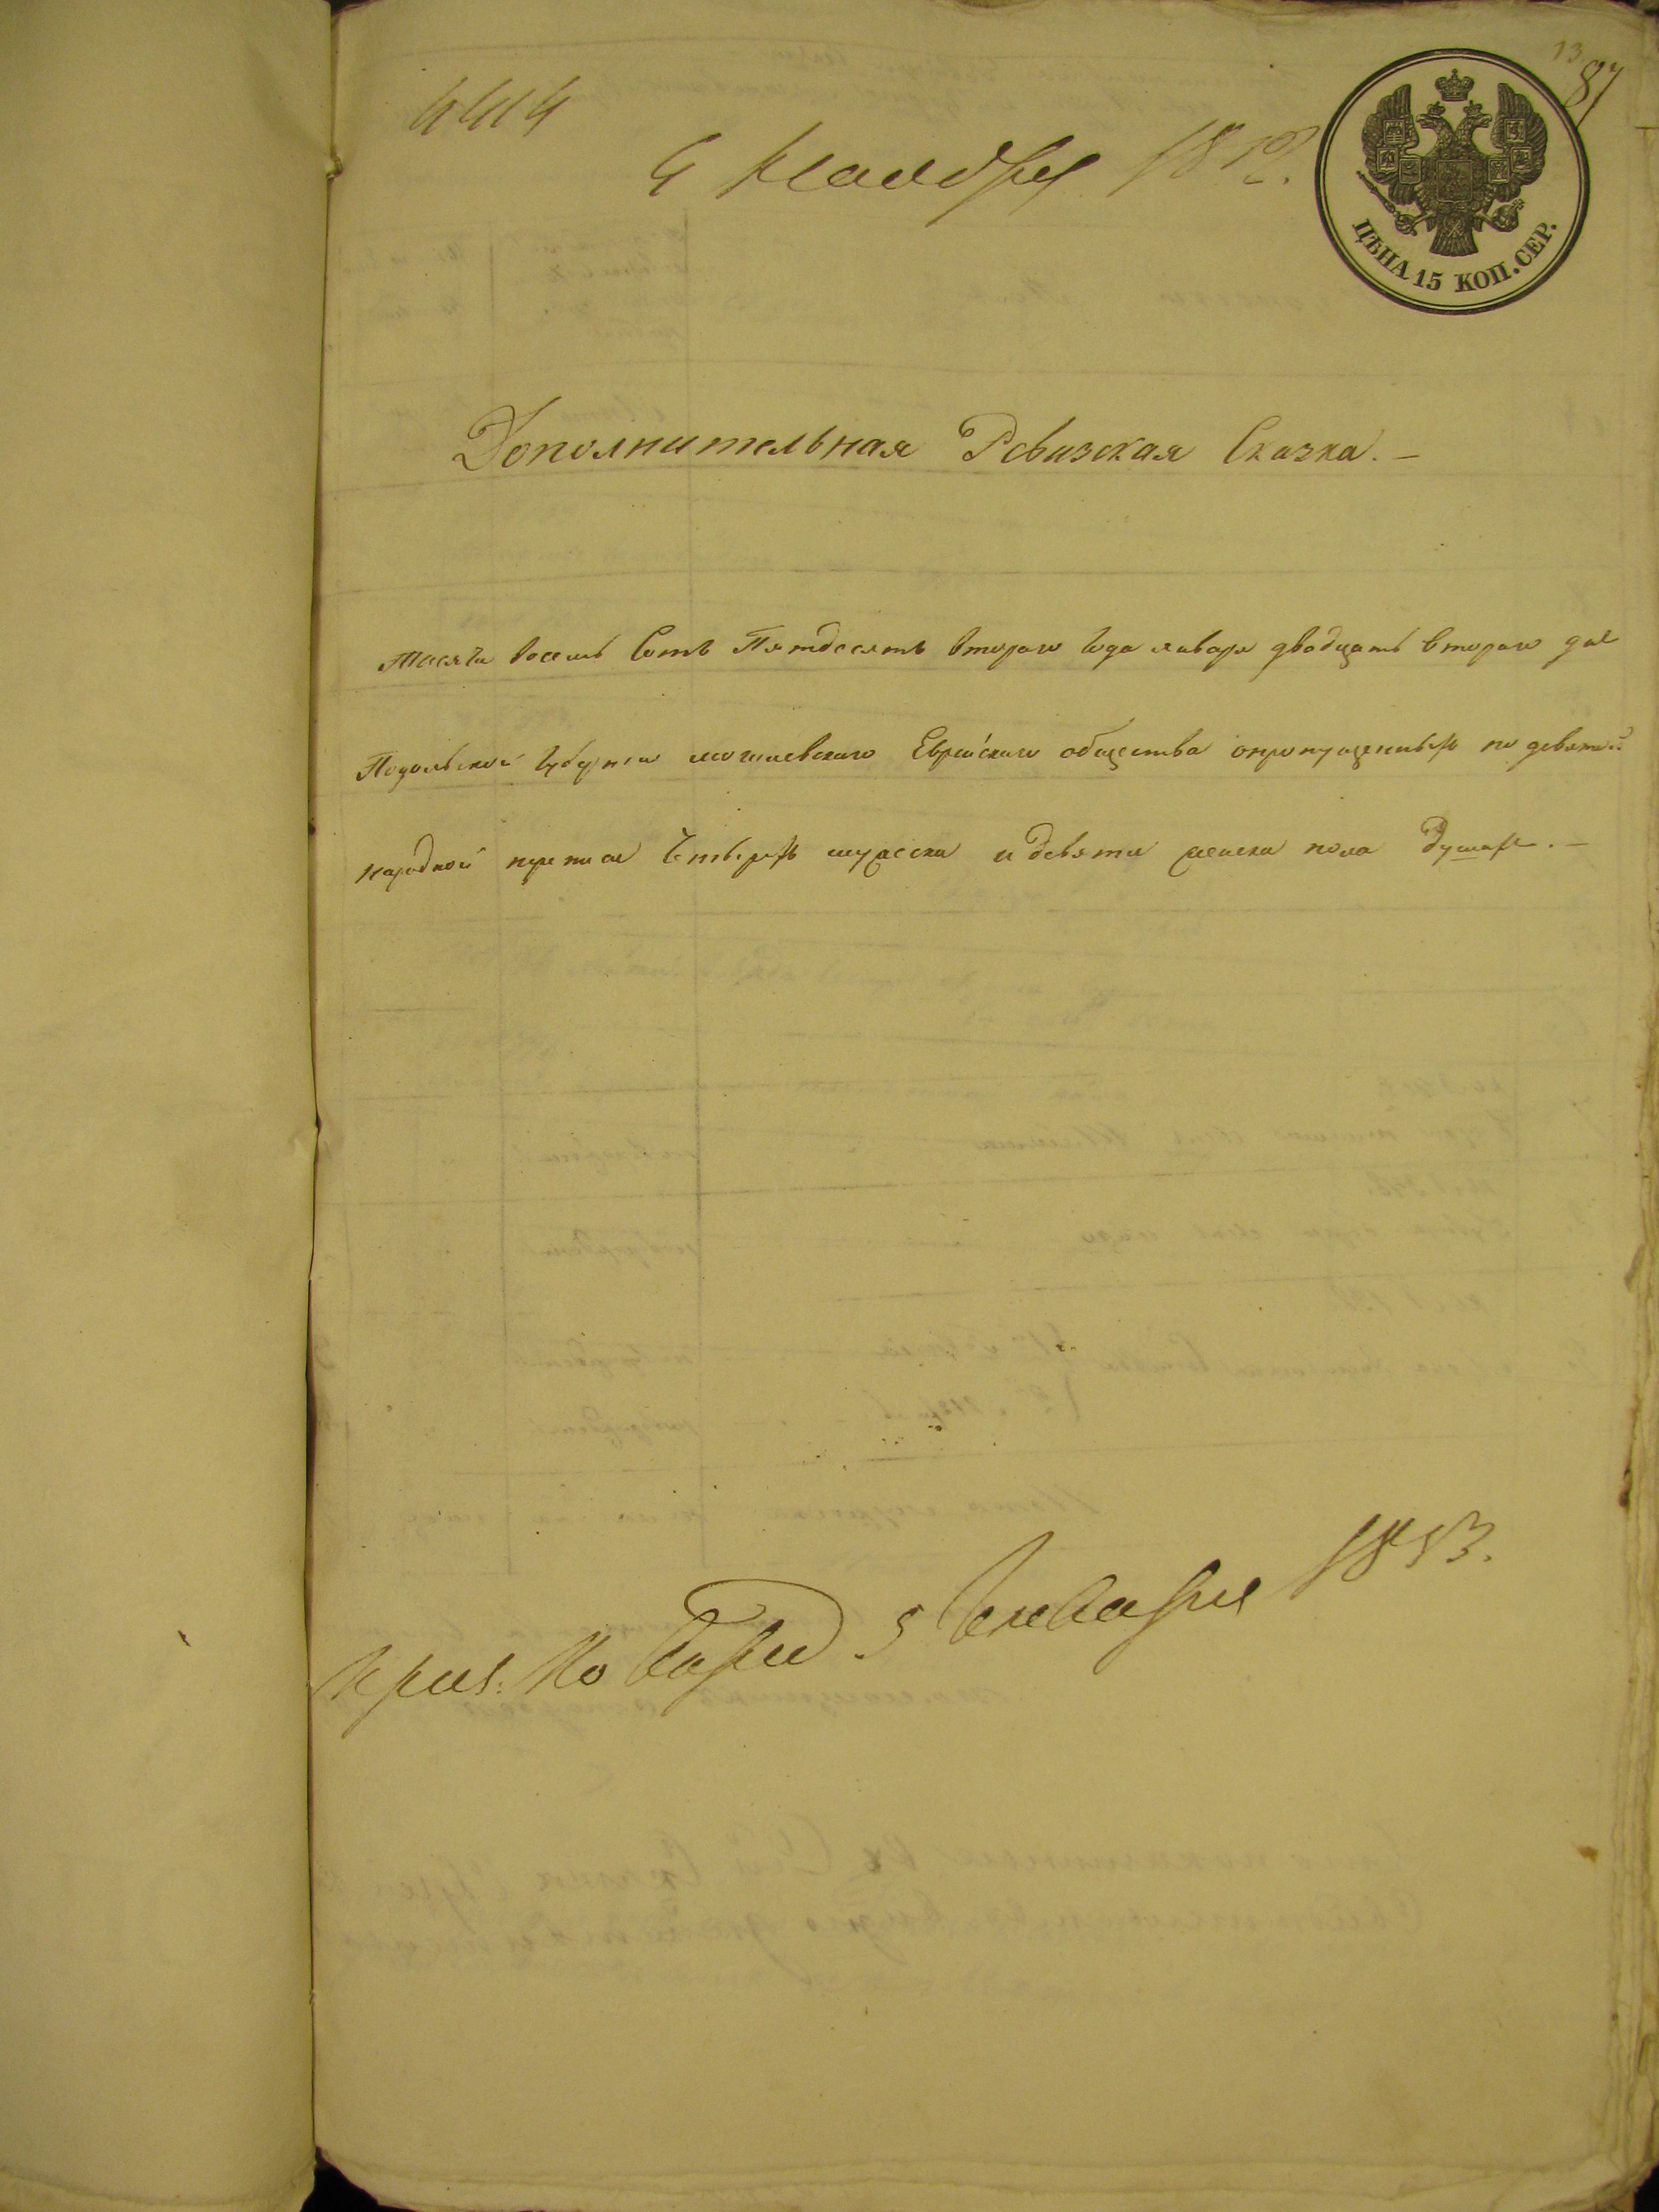 13
87
4414
4 Ноября 1852.
ЦѢНА 15 КОП. СЕР.
Дополнительная Ревизская Сказка. –
Тысяча восемь Сотъ Пятдесятъ втораго Года января двадцать втораго дня
Подольской Губерніи могилевскаго Еврейскаго общества опропущенныхъ по девятой
народной переписи Четырехъ мужеска и девяти женска пола душахъ. –
5 Января 1853.